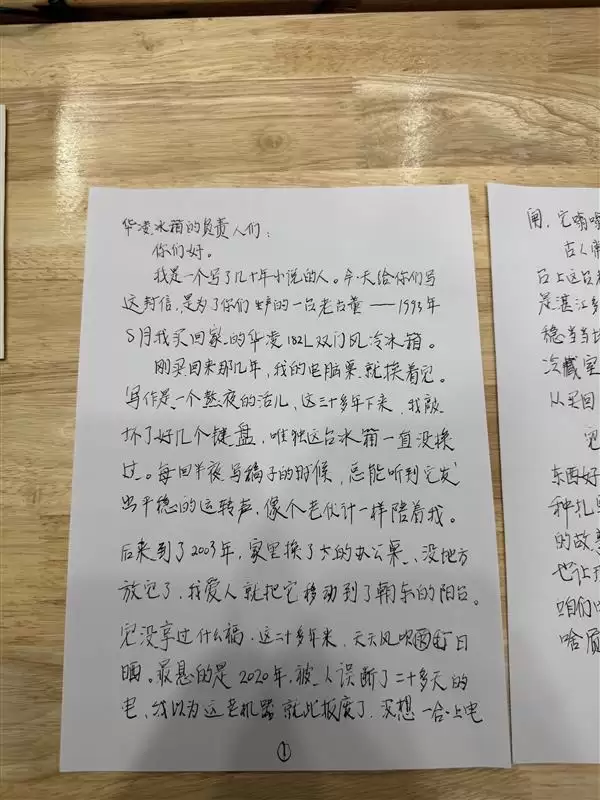 华凌冰箱的负责人们：
你们好。
我是一个写了几十年小说的人。今天给你们写
这封信，是为了你们生产的一台老古董——1993年
5月我买回家的华凌182L双门风冷冰箱。
刚买回来那几年，我的电脑桌就挨着它。
写作是一个熬夜的活儿，这三十多年下来，我敲
坏了好几个键盘，唯独这台冰箱一直没挨
过。每回半夜写稿子的时候，总能听到它发
出平稳的运转声，像个老伙计一样陪着我。
后来到了2003年，家里换了大的办公桌，没地方
放它了，我爱人就把它移动到了朝东的阳台。
它没享过什么福，这二十多年来，天天风吹日
晒。最悬的是2020年，被人误断了二十多天的
电，我以为这老机器就此报废了，没想一合上电
①
闹，它嘀嘀
古人常
台上这台
是湛江乡
稳当当
冷藏室
从买回
它
东西好
种扎
的故
也让
咱们
啥质